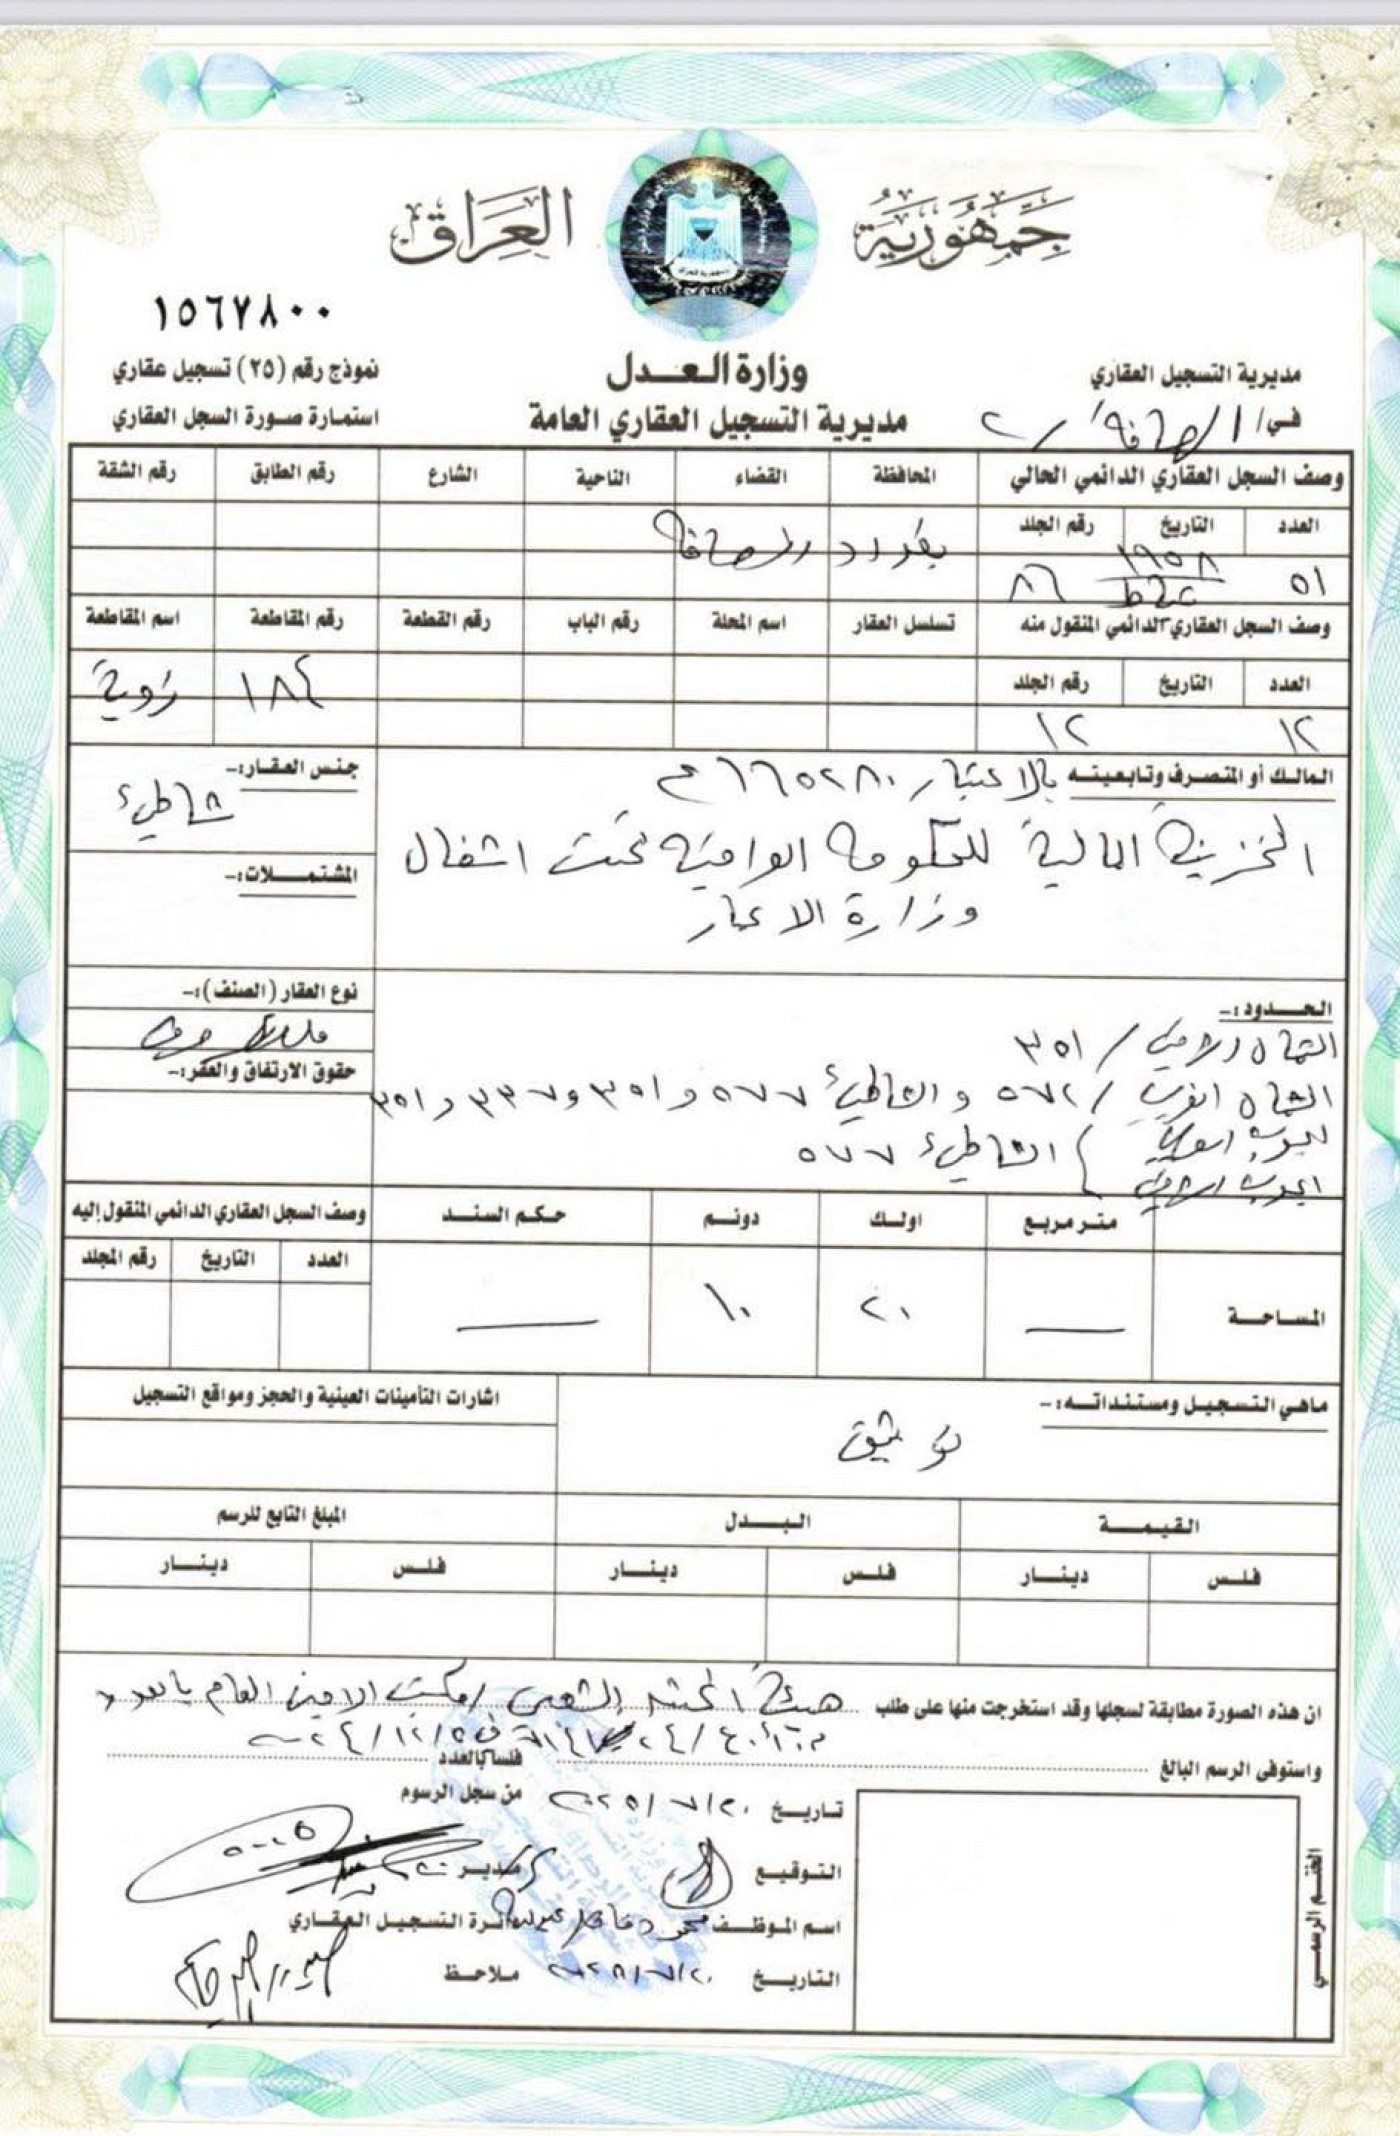 جمهورية العراق
١٥٦٧٨٠٠
وزارة العدل
مديرية التسجيل العقاري العامة
مديرية التسجيل العقاري
في/ الرصافة/ ٢
نموذج رقم (٢٥) تسجيل عقاري
استمارة صورة السجل العقاري
وصف السجل العقاري الدائمي الحالي
المحافظة القضاء الناحية الشارع رقم الطابق رقم الشقة
العدد التاريخ رقم الجلد
بغداد الرصافة
٥١ ١٩٥٨ شباط ٨٦
وصف السجل العقاري الدائمي المنقول منه
تسلسل العقار اسم المحلة رقم الباب رقم القطعة رقم المقاطعة اسم المقاطعة
العدد التاريخ رقم الجلد
١٨٤ زوية
١٢ ١٢
المالك أو المتصرف وتابعيته بالاعتبار
الخزينة المالية للحكومة العراقية تحت اشغال
وزارة الاعمار
جنس العقار:-
شاطئ
المشتمــلات:-
نوع العقار (الصنف):-
ملك صرف
حقوق الارتفاق والعقر:-
الحدود:-
الشمال الشرقي / ٣٥١
الشمال الغربي / ٥٧٢ والشاطئ ٥٧٧ و ٣٥١ و ٣٣٧ و ٣٥١
الجنوب الغربي
الجنوب الشرقي
الشاطئ ٥٧٧
متر مربع اولك دونم حكم السند
وصف السجل العقاري الدائمي المنقول إليه
العدد التاريخ رقم المجلد
المساحة — ٢٠ ١٠ —
ماهي التسجيل ومستنداته:-
توثيق
اشارات التأمينات العينية والحجز ومواقع التسجيل
القيمة البدل المبلغ التابع للرسم
فلس دينار فلس دينار فلس دينار
ان هذه الصورة مطابقة لسجلها وقد استخرجت منها على طلب هيئة الحشد الشعبي / مكتب الامين العام بالعدد
واستوفى الرسم البالغ فلسا بالعدد
من سجل الرسوم
تاريخ ٢٠/٧/٢٠٢٥
التوقيع
مدير
اسم الموظف محمود
دائرة التسجيل العقاري
التاريخ ٢٠/٧/٢٠٢٥
ملاحظ
الختم الرسمي